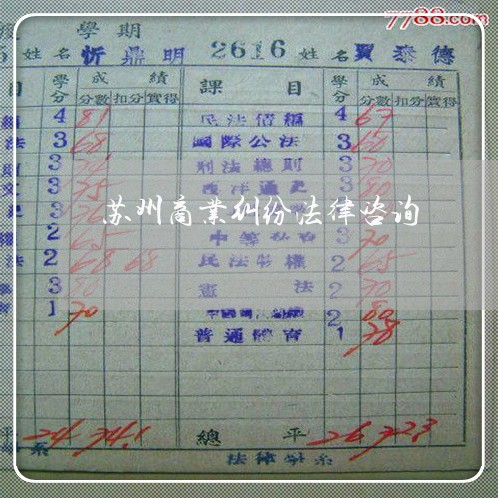 7788.com
學期
姓名 忻鼎明 2616 姓名 賈泰德
目 學分 成績 課目 學分 成績
分數 扣分 實得 分數 扣分 實得
4 81 民法債編 4 67
法 3 68 國際公法 3 60
3 刑法總則 3 70
3 75 西洋通史 3 80
苏州商業纠纷法律咨询
2 65 3 70
法 2 68 68 民法物權 2 65
3 80 憲法 2 70
1 70 2 80
普通體育 1 78
平 24 74.1 總平 26 72.3
系 法律學系